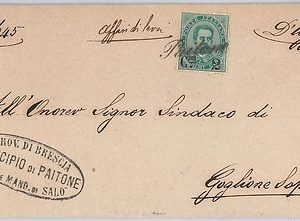 45 Affari di leva
Paitone
2
All'Onorev Signor Sindaco di
PROV. DI BRESCIA
CIPIO DI PAITONE
E MAND. DI SALÒ
Goglione Sop